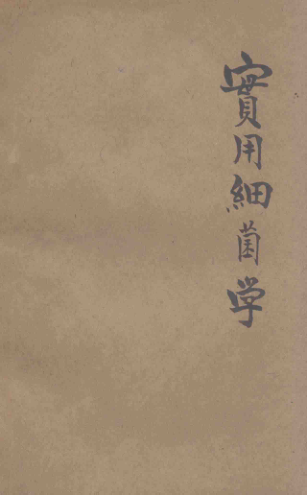 實用細菌学